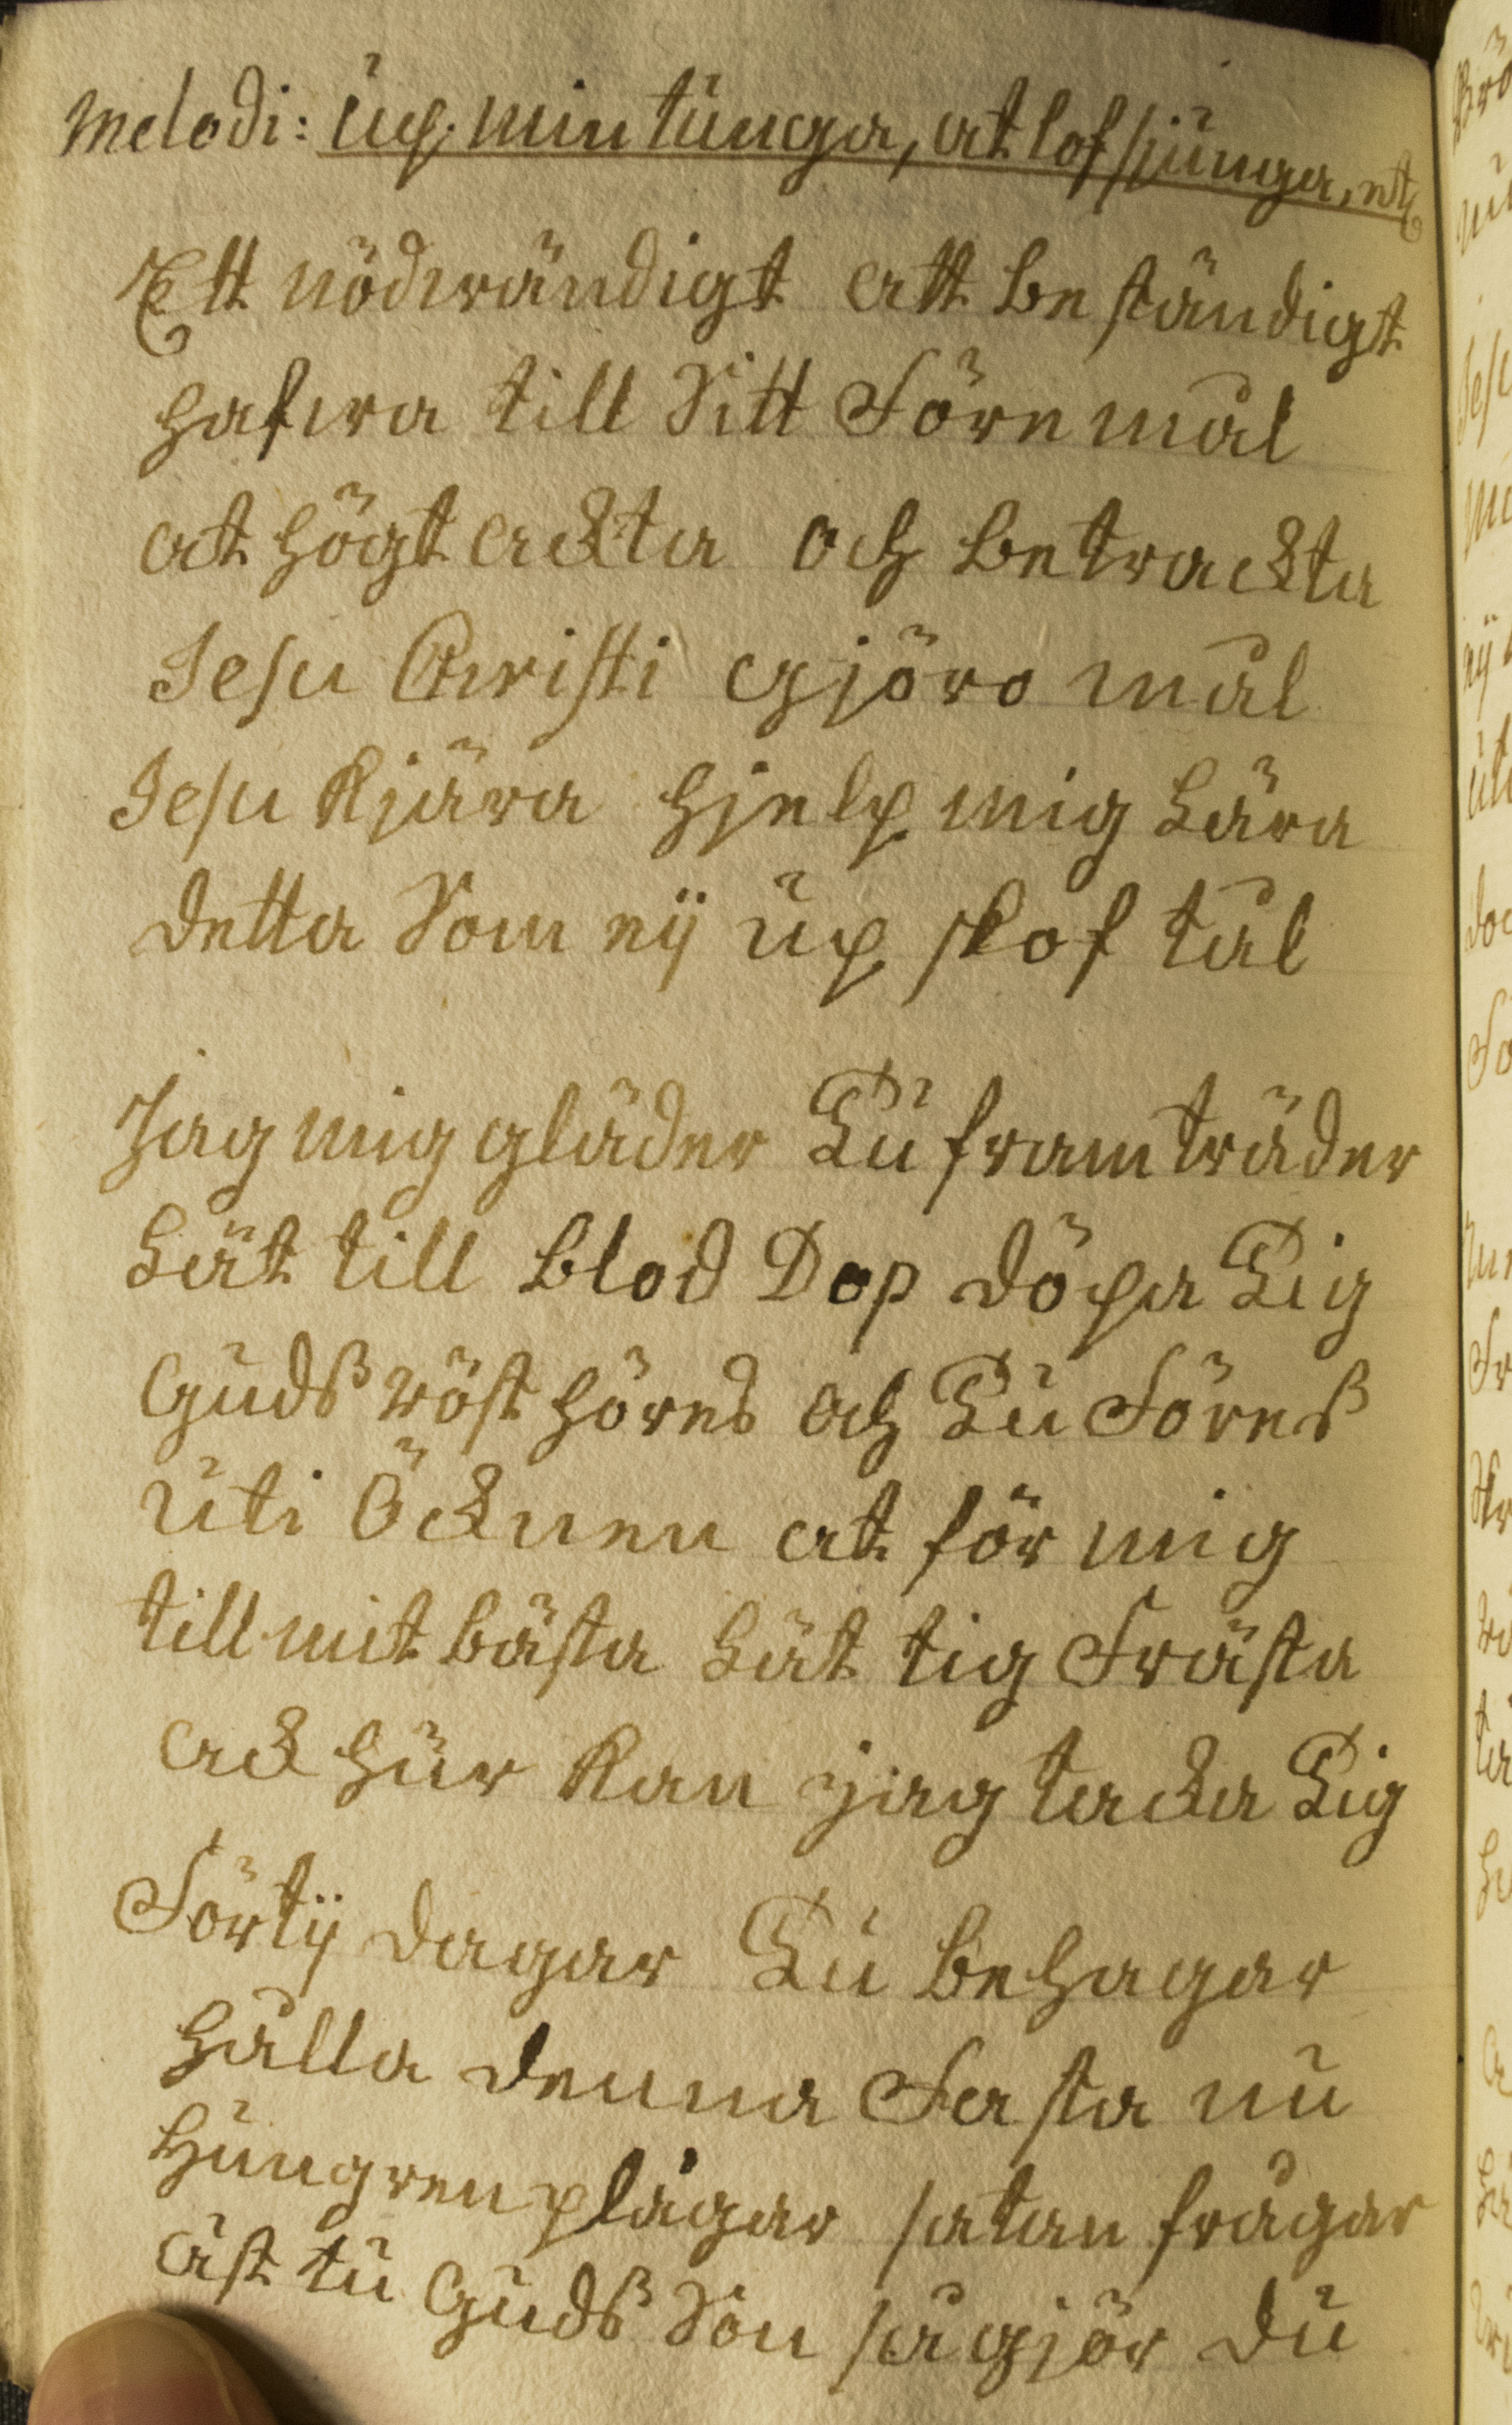 Melodi: Up min tunga, at lofsjunga, etc
Ett nödwändigt att beständigt
hafwa till Sitt Föremål
at högt ackta och betrackta
Jesu Christi gjöromål
Jesu Kjära hjelp mig Lära
detta Som eij upskof tål
Jag mig gläder Tu framträder
Lät till blod Dop döpa Tig
Gudß röst höres och Tu Föreß
uti Öcknen at för mig
till mit bästa Lät tig Frästa
ack hur Kan jag tacka Tig
Förtij dagar Tu behagar
hålla denna Fasta nu
Hungren plågar satan frågar
äst tu Gudß Son så gjör du